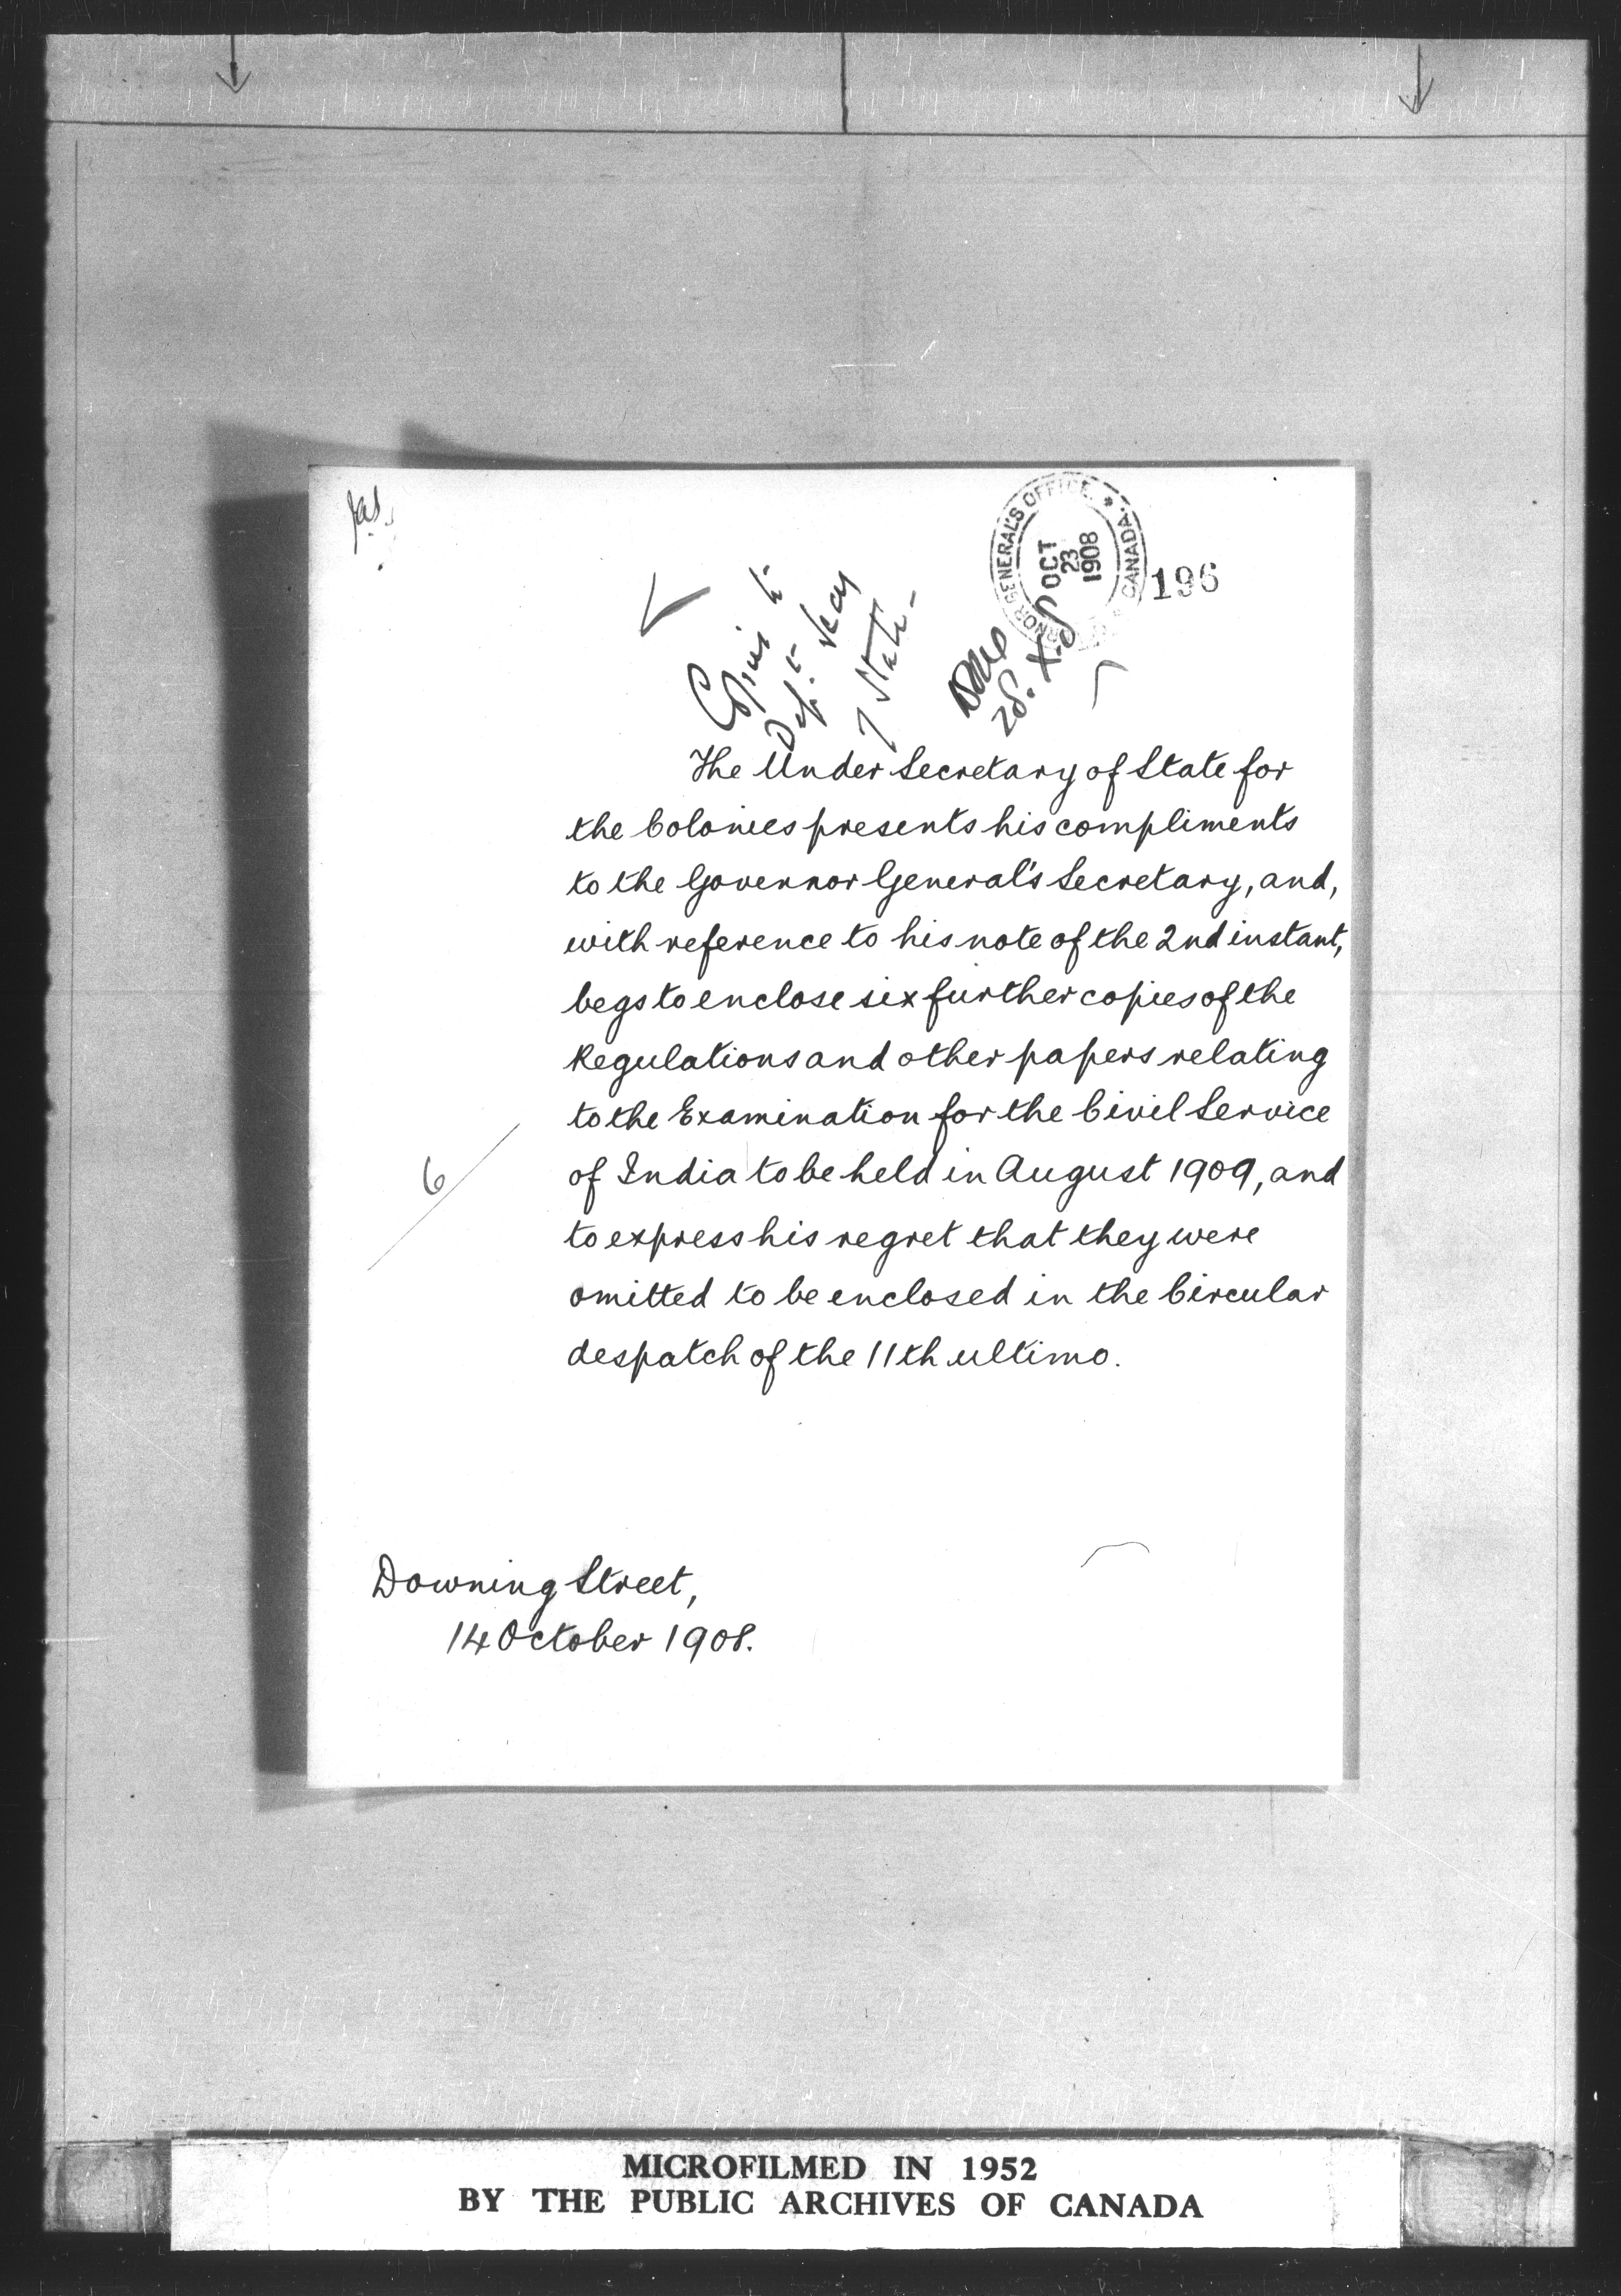 Copies to
Dept. Secy
of State.
Done
28.X.08
GOVERNOR GENERAL'S OFFICE * CANADA *
OCT
23
1908
196
The Under Secretary of State for
the Colonies presents his compliments
to the Governor General's Secretary, and,
with reference to his note of the 2nd instant,
begs to enclose six further copies of the
Regulations and other papers relating
to the Examination for the Civil Service
6
of India to be held in August 1909, and
to express his regret that they were
omitted to be enclosed in the Circular
despatch of the 11th ultimo.
Downing Street,
14 October 1908.
MICROFILMED IN 1952
BY THE PUBLIC ARCHIVES OF CANADA